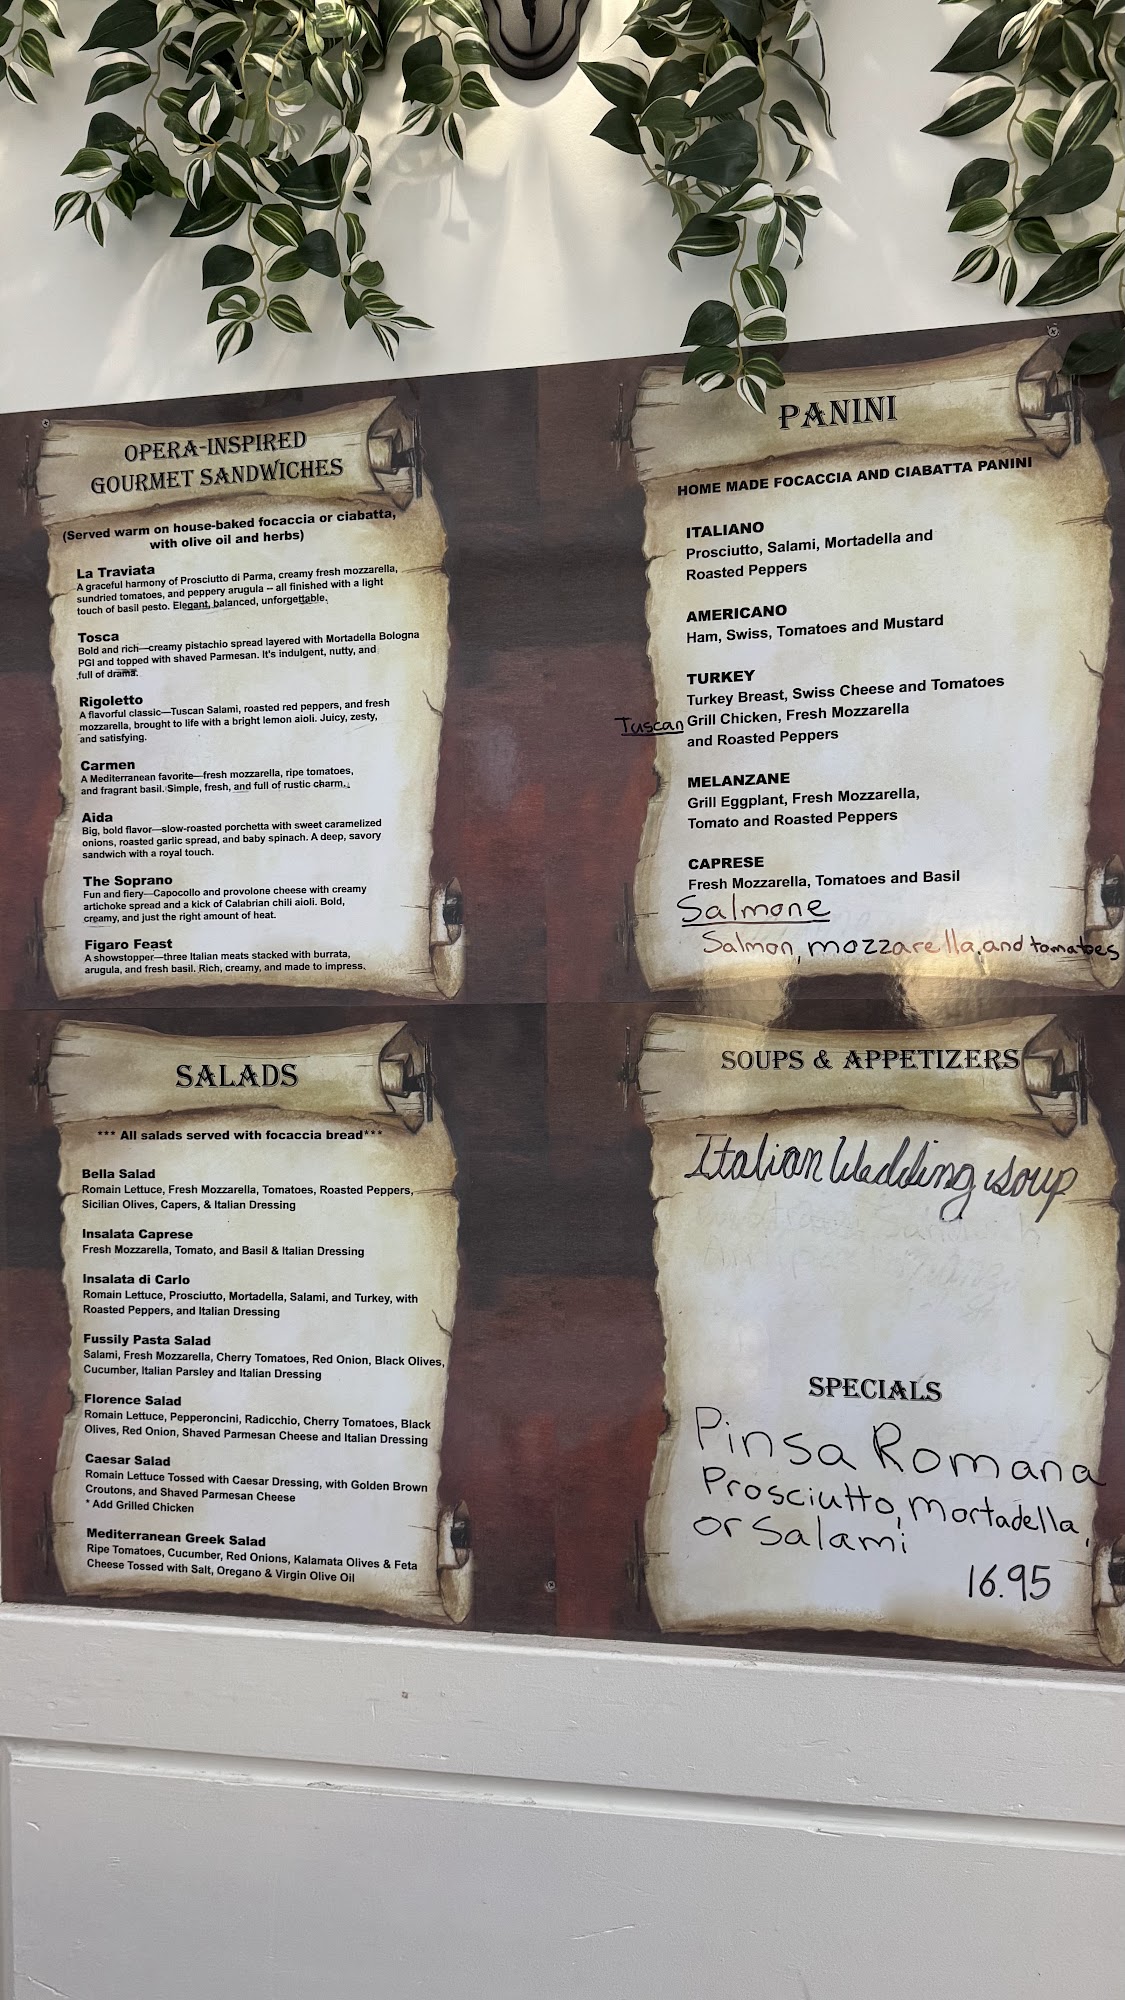 OPERA-INSPIRED
GOURMET SANDWICHES
(Served warm on house-baked focaccia or ciabatta,
with olive oil and herbs)
La Traviata
A graceful harmony of Prosciutto di Parma, creamy fresh mozzarella,
sundried tomatoes, and peppery arugula -- all finished with a light
touch of basil pesto. Elegant, balanced, unforgettable.
Tosca
Bold and rich—creamy pistachio spread layered with Mortadella Bologna
PGI and topped with shaved Parmesan. It's indulgent, nutty, and
full of drama.
Rigoletto
A flavorful classic—Tuscan Salami, roasted red peppers, and fresh
mozzarella, brought to life with a bright lemon aioli. Juicy, zesty,
and satisfying.
Carmen
A Mediterranean favorite—fresh mozzarella, ripe tomatoes,
and fragrant basil. Simple, fresh, and full of rustic charm.
Aida
Big, bold flavor—slow-roasted porchetta with sweet caramelized
onions, roasted garlic spread, and baby spinach. A deep, savory
sandwich with a royal touch.
The Soprano
Fun and fiery—Capocollo and provolone cheese with creamy
artichoke spread and a kick of Calabrian chili aioli. Bold,
creamy, and just the right amount of heat.
Figaro Feast
A showstopper—three Italian meats stacked with burrata,
arugula, and fresh basil. Rich, creamy, and made to impress.
PANINI
HOME MADE FOCACCIA AND CIABATTA PANINI
ITALIANO
Prosciutto, Salami, Mortadella and
Roasted Peppers
AMERICANO
Ham, Swiss, Tomatoes and Mustard
TURKEY
Turkey Breast, Swiss Cheese and Tomatoes
Tuscan Grill Chicken, Fresh Mozzarella
and Roasted Peppers
MELANZANE
Grill Eggplant, Fresh Mozzarella,
Tomato and Roasted Peppers
CAPRESE
Fresh Mozzarella, Tomatoes and Basil
Salmone
Salmon, mozzarella, and tomatoes
SALADS
*** All salads served with focaccia bread***
Bella Salad
Romain Lettuce, Fresh Mozzarella, Tomatoes, Roasted Peppers,
Sicilian Olives, Capers, & Italian Dressing
Insalata Caprese
Fresh Mozzarella, Tomato, and Basil & Italian Dressing
Insalata di Carlo
Romain Lettuce, Prosciutto, Mortadella, Salami, and Turkey, with
Roasted Peppers, and Italian Dressing
Fussily Pasta Salad
Salami, Fresh Mozzarella, Cherry Tomatoes, Red Onion, Black Olives,
Cucumber, Italian Parsley and Italian Dressing
Florence Salad
Romain Lettuce, Pepperoncini, Radicchio, Cherry Tomatoes, Black
Olives, Red Onion, Shaved Parmesan Cheese and Italian Dressing
Caesar Salad
Romain Lettuce Tossed with Caesar Dressing, with Golden Brown
Croutons, and Shaved Parmesan Cheese
* Add Grilled Chicken
Mediterranean Greek Salad
Ripe Tomatoes, Cucumber, Red Onions, Kalamata Olives & Feta
Cheese Tossed with Salt, Oregano & Virgin Olive Oil
SOUPS & APPETIZERS
Italian Wedding soup
SPECIALS
Pinsa Romana
Prosciutto, Mortadella,
or Salami
16.95